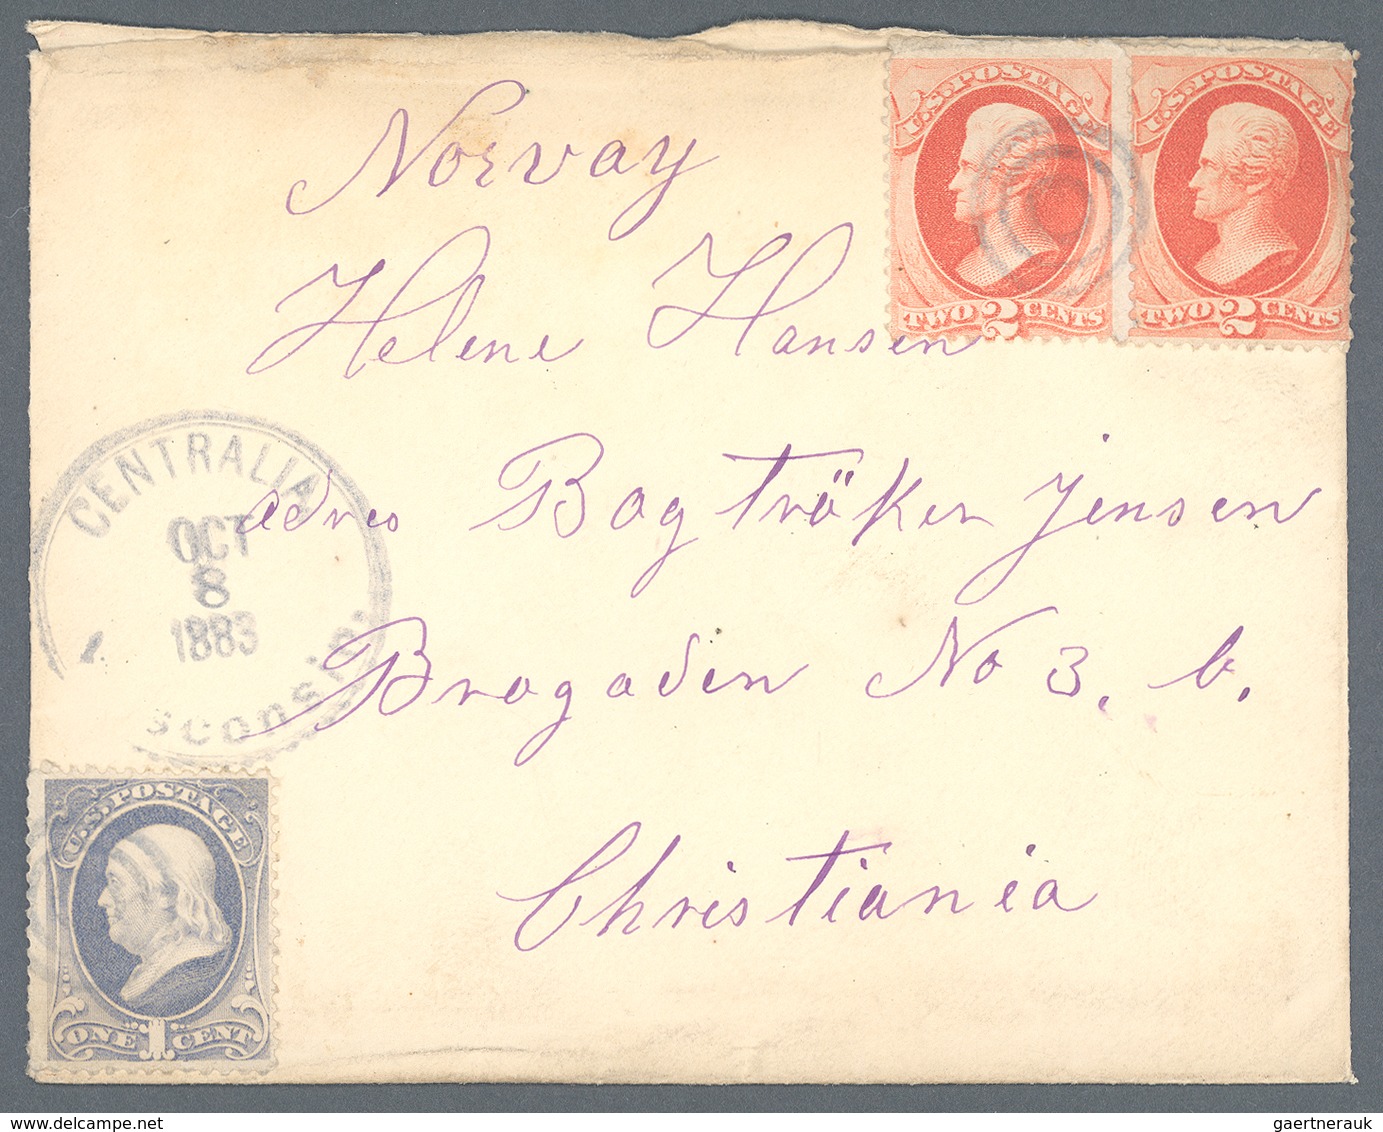 Norvay
U.S. POSTAGE
TWO 2 CENTS
U.S. POSTAGE
TWO 2 CENTS
Helene Hansen
CENTRALIA
OCT
8
1883
sconsin.
adres Bogtröker Jensen
Brogaden No 3. b.
Christiania
U.S. POSTAGE
ONE 1 CENT
gaertnerauk@delcampe.net